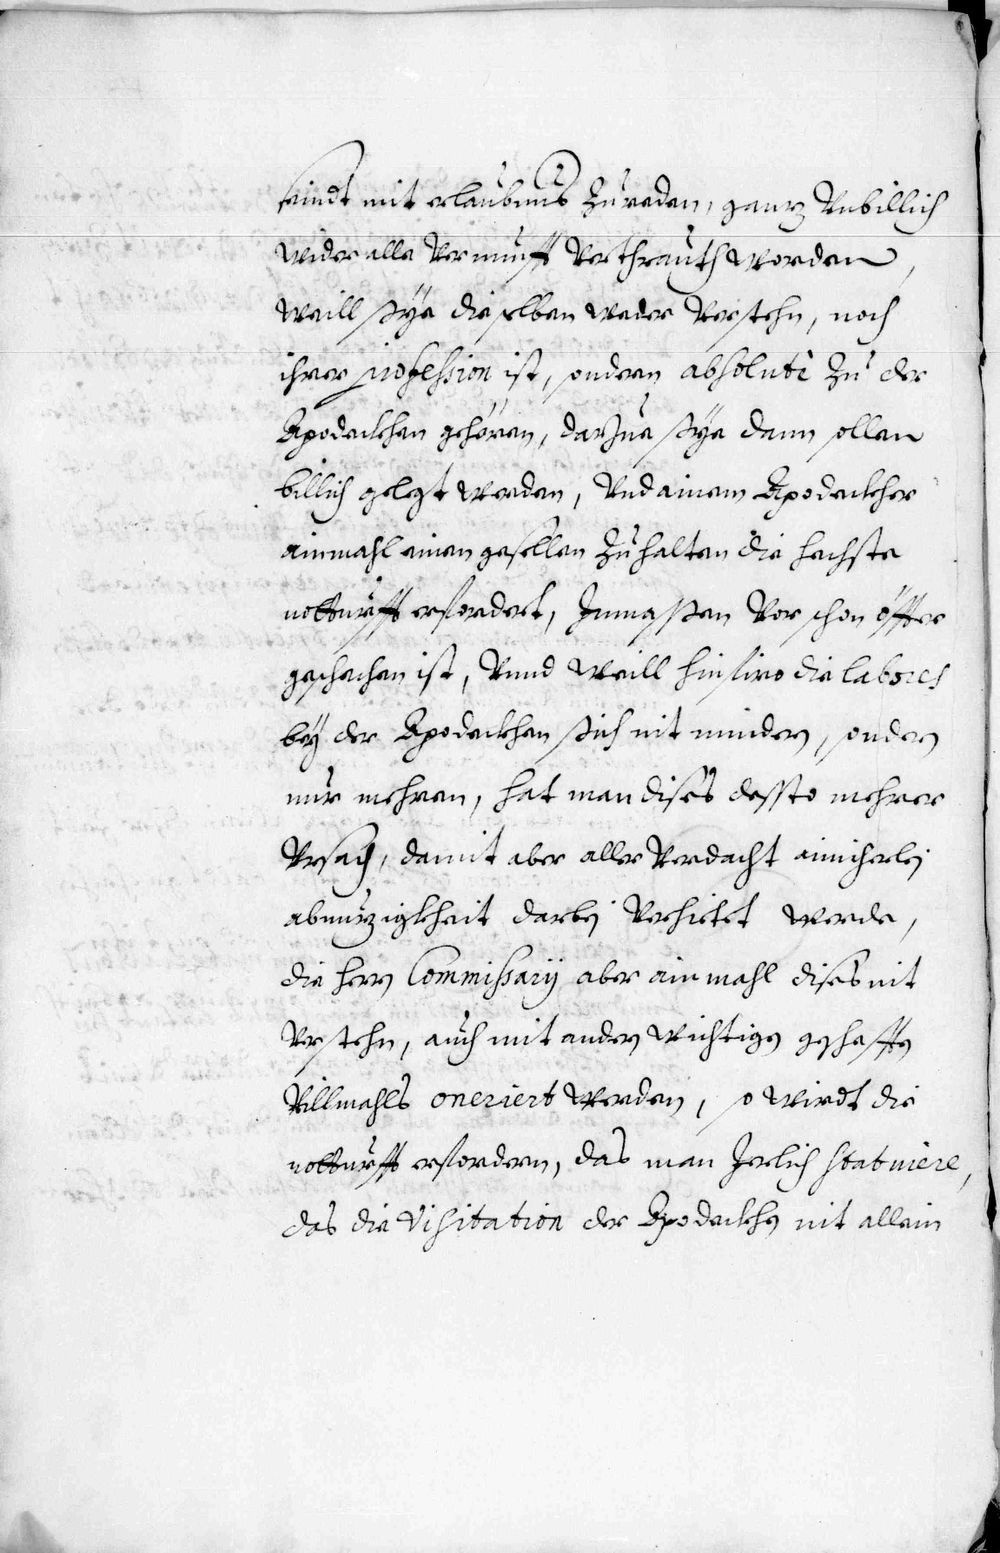 seindt mit erlaubnus Zureden, gantz Vnbillich
wider alle Vernunfft Verthrauth worden,
weill sÿe dieselben weder Verstehn, noch
ihrer profession ist, sondern absolutè Zu der
Apodeckhen gehören, darZue sÿe dann sollen
billich gelegt werden, Vnd ainem Apodeckher
ainmahl einen gesellen Zuhalten die hechste
notturfft erfordert, Inmassen Vor schon öffter
geschechen ist, Vnnd weill hinfiro die labores
beÿ der Apodeckhen sich nit mindern, sondern
nur mehren, hat man dises dessto mehrer
Vrsach, damit aber aller Verdacht ainicherleÿ
abnuzigkheit darbeÿ Verhietet werde,
die herrn Commissarij aber ainmahl dises nit
Verstehn, auch mit andern wichtigen gescheffen
Villmahls oneriert werden, so wirdt die
notturfft erfordern, das man Jerlich statuiere,
das die Visitation der Apodeckhen nit allein